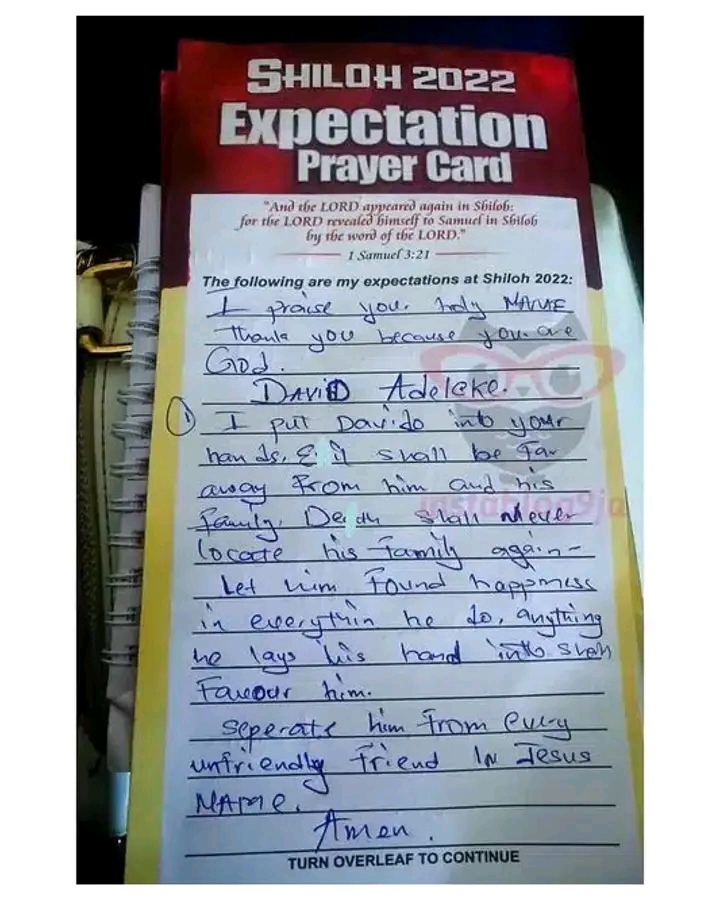 SHILOH 2022
Expectation
Prayer Card
"And the LORD appeared again in Shiloh:
for the LORD revealed himself to Samuel in Shiloh
by the word of the LORD."
1 Samuel 3:21
The following are my expectations at Shiloh 2022:
I praise you. holy NAME
Thank you because you are
God.
DAVID Adeleke.
1 I put Davido into your
hands, Evil shall be far
away From him and his
family. Death shall Never
locate his family again-
Let him found happiness
in everythin he do, anything
he lays his hand into shall
Favour him.
seperate him from every
unfriendly friend IN Jesus
NAME.
Amen.
TURN OVERLEAF TO CONTINUE
instablog9ja